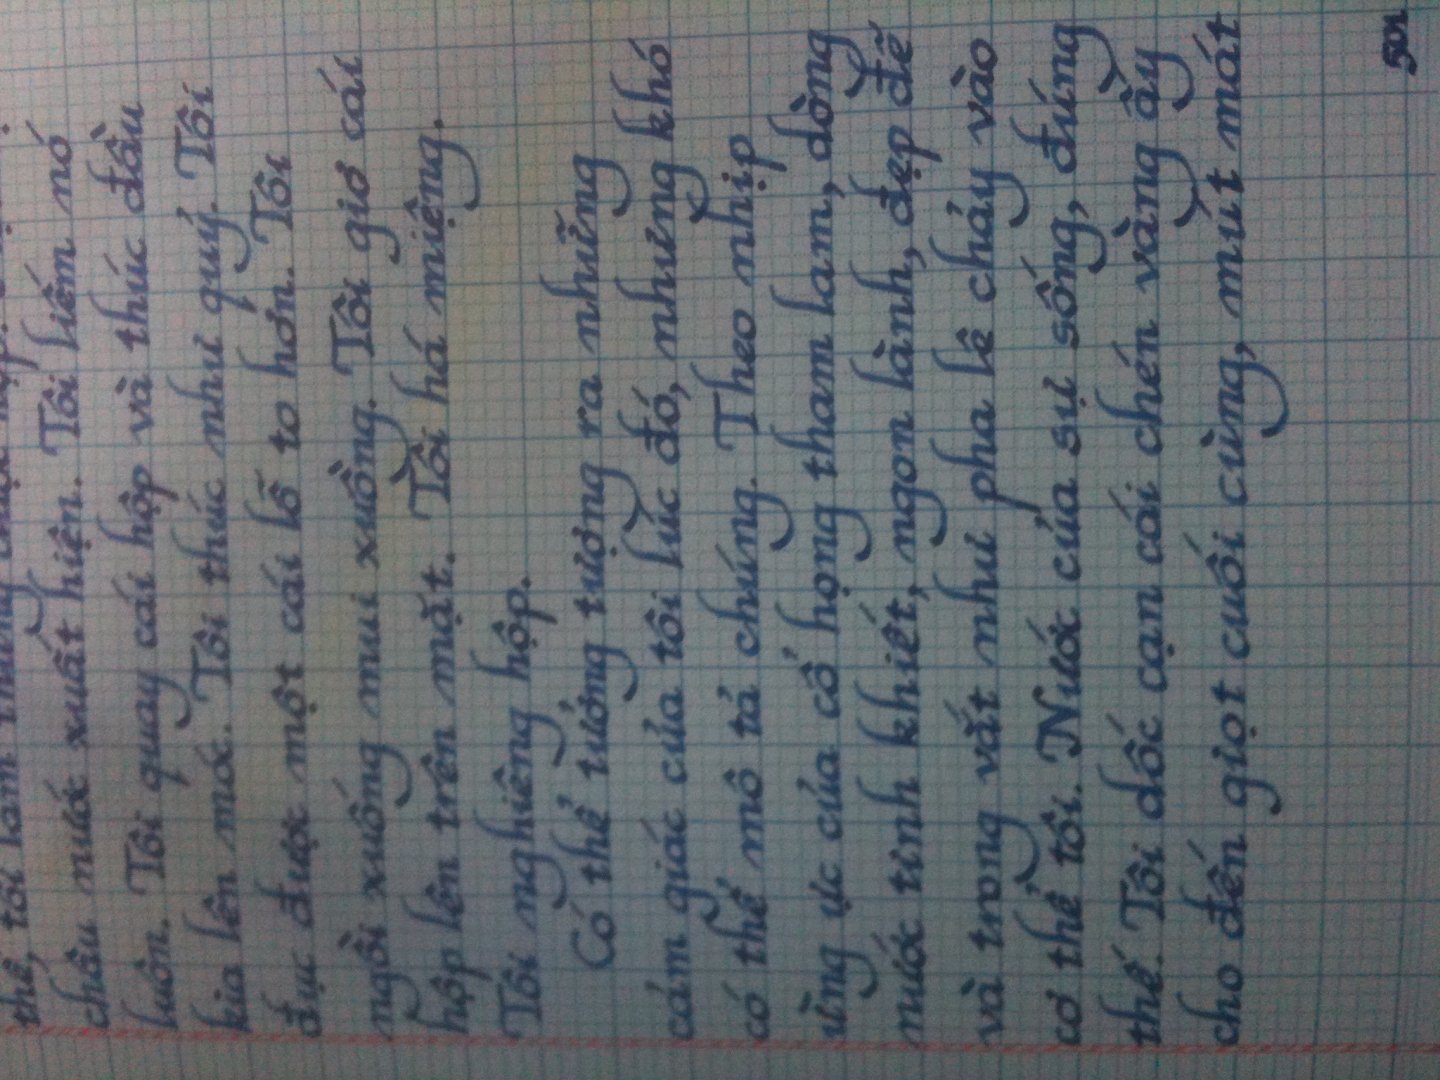 thế, tôi
châu nước xuất hiện. Tôi liếm nó
luôn. Tôi quay cái hộp và thúc đầu
kia lên móc. Tôi thúc như quỷ. Tôi
đục được một cái lỗ to hơn. Tôi
ngồi xuống mui xuồng. Tôi giơ cái
hộp lên trên mặt. Tôi há miệng.
Tôi nghiêng hộp.
Có thể tưởng tượng ra những
cảm giác của tôi lúc đó, nhưng khó
có thể mô tả chúng. Theo nhịp
ừng ực của cổ họng tham lam, dòng
nước tinh khiết, ngon lành, đẹp đẽ
và trong vắt như pha lê chảy vào
cơ thể tôi. Nước của sự sống, đúng
thế. Tôi dốc cạn cái chén vàng ấy
cho đến giọt cuối cùng, mút mát
501